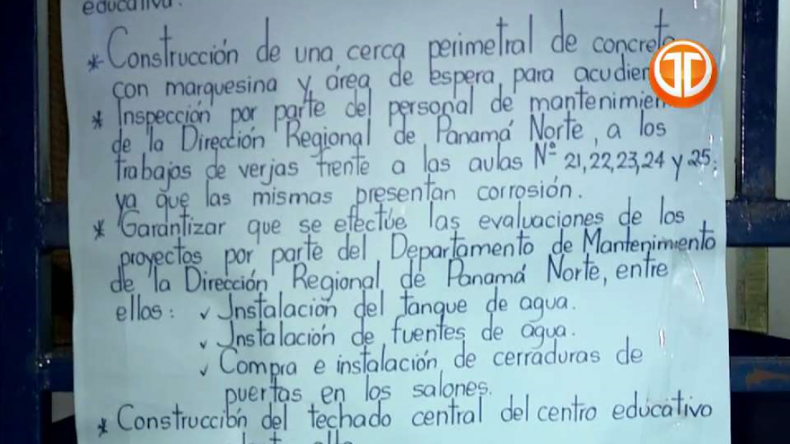 educativa.
* Construcción de una cerca perimetral de concreto
con marquesina y área de espera para
* Inspección por parte del personal de
de la Dirección Regional de Panamá Norte, a los
trabajos de verjas frente a las aulas Nº 21,22,23,24 y 25;
ya que las mismas presentan corrosión.
* Garantizar que se efectúe las evaluaciones de los
proyectos por parte del Departamento de Mantenimiento
de la Dirección Regional de Panamá Norte, entre
ellos: ✓ Instalación del tanque de agua.
✓ Instalación de fuentes de agua.
✓ Compra e instalación de cerraduras de
puertas en los salones.
* Construcción del techado central del centro educativo